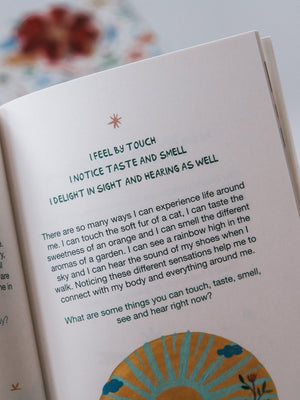 I FEEL BY TOUCH
I NOTICE TASTE AND SMELL
I DELIGHT IN SIGHT AND HEARING AS WELL
There are so many ways I can experience life around
me. I can touch the soft fur of a cat, I can taste the
sweetness of an orange and I can smell the different
aromas of a garden. I can see a rainbow high in the
sky and I can hear the sound of my shoes when I
walk. Noticing these different sensations help me to
connect with my body and everything around me.
What are some things you can touch, taste, smell,
see and hear right now?
are
e in
y?